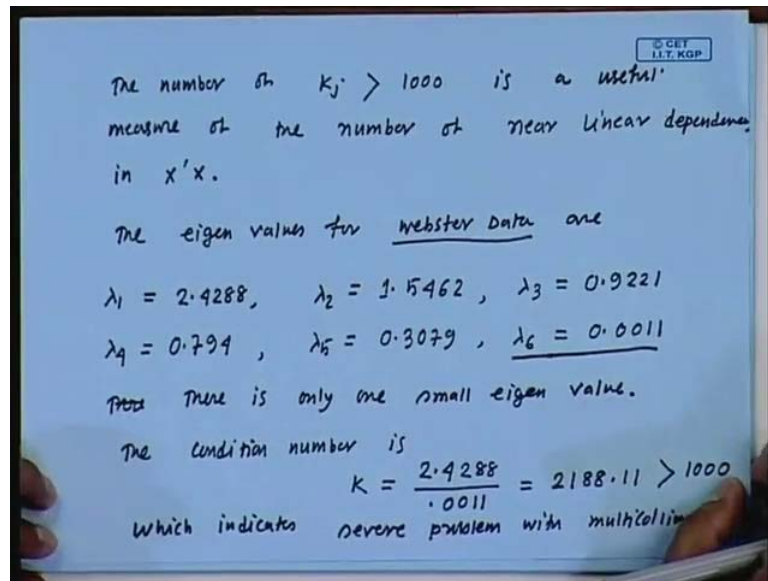 © CET
I.I.T. KGP
The number of Kj > 1000 is a useful
measure of the number of near linear dependence
in x'x.
The eigen values for Webster Data are
λ1 = 2.4288, λ2 = 1.5462, λ3 = 0.9221
λ4 = 0.794, λ5 = 0.3079, λ6 = 0.0011
There is only one small eigen value.
The condition number is
K = 2.4288 / .0011 = 2188.11 > 1000
Which indicates severe problem with multicollin